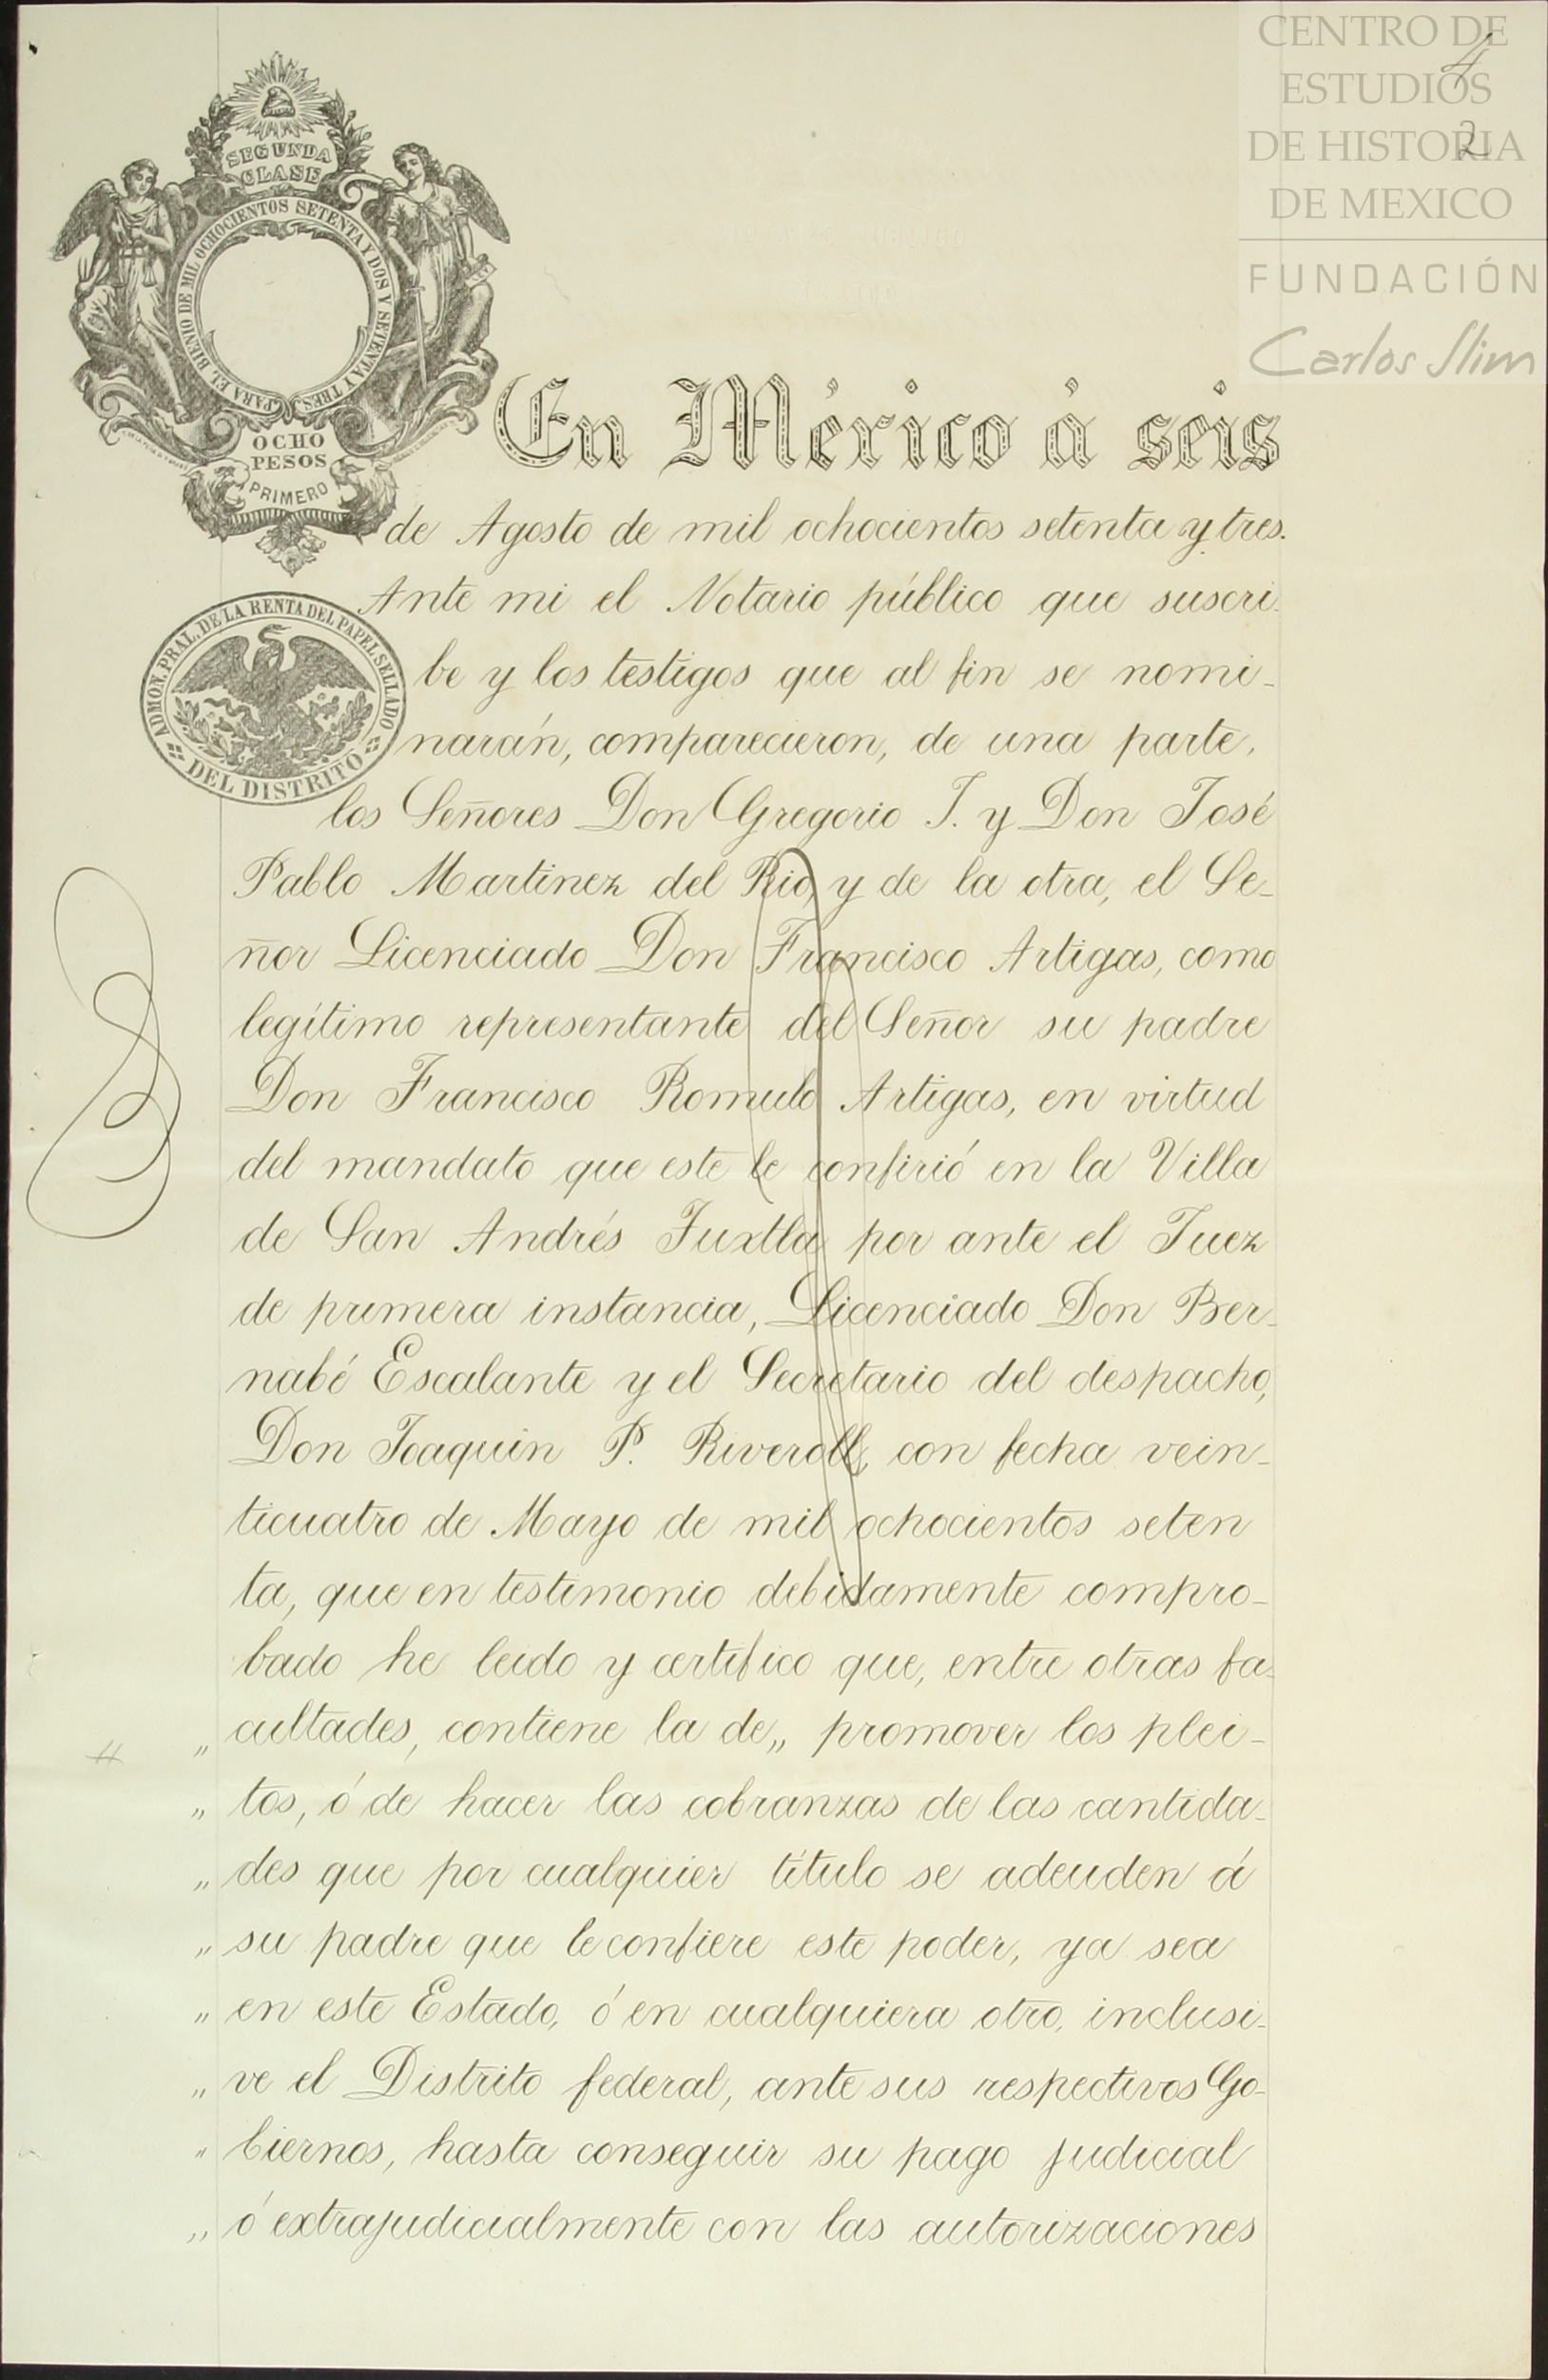 CENTRO DE
ESTUDIOS
DE HISTORIA
DE MEXICO
FUNDACIÓN
Carlos Slim
4
2
SEGUNDA
CLASE
PARA EL BIENIO DE MIL OCHOCIENTOS SETENTA Y DOS Y SETENTA Y TRES
OCHO
PESOS
PRIMERO
En México á seis
de Agosto de mil ochocientos setenta y tres.
Ante mi el Notario público que suscri-
be y los testigos que al fin se nomi-
narán, comparecieron, de una parte,
ADMON. PRAL. DE LA RENTA DEL PAPEL SELLADO
DEL DISTRITO
los Señores Don Gregorio J. y Don José
Pablo Martinez del Rio, y de la otra, el Se-
ñor Licenciado Don Francisco Artigas, como
legítimo representante del Señor su padre
Don Francisco Romulo Artigas, en virtud
del mandato que este le confirió en la Villa
de San Andrés Tuxtla por ante el Juez
de primera instancia, Licenciado Don Ber-
nabé Escalante y el Secretario del despacho,
Don Joaquin P. Riveroll, con fecha vein-
ticuatro de Mayo de mil ochocientos seten
ta, que en testimonio debidamente compro-
bado he leido y certifico que, entre otras fa-
„ cultades, contiene la de „ promover los plei-
„ tos, ó de hacer las cobranzas de las cantida-
„ des que por cualquier título se adeuden á
„ su padre que le confiere este poder, ya sea
„ en este Estado, ó en cualquiera otro, inclusi-
„ ve el Distrito federal, ante sus respectivos Go-
„ biernos, hasta conseguir su pago judicial
„ ó extrajudicialmente con las autorizaciones